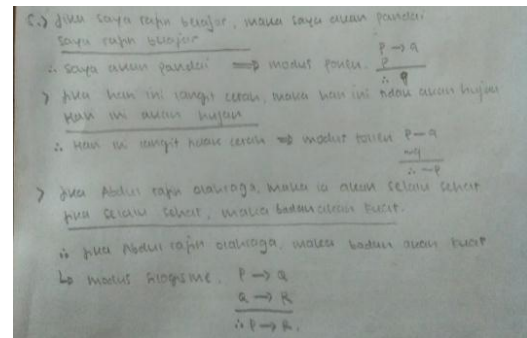 c.) Jika saya rajin belajar, maka saya akan pandai
saya rajin belajar
∴ saya akan pandai ⟹ modus ponen. P → q
P
∴ q
> jika hari ini langit cerah, maka hari ini tidak akan hujan
Hari ini akan hujan
∴ Hari ini langit tidak cerah ⟹ modus tollen P → q
~q
∴ ~P
> Jika Abdul rajin olahraga, maka ia akan selalu sehat
jika selalu sehat, maka badan akan kuat.
∴ jika Abdul rajin olahraga, maka badan akan kuat
↳ modus silogisme. P → Q
Q → R
∴ P → R.